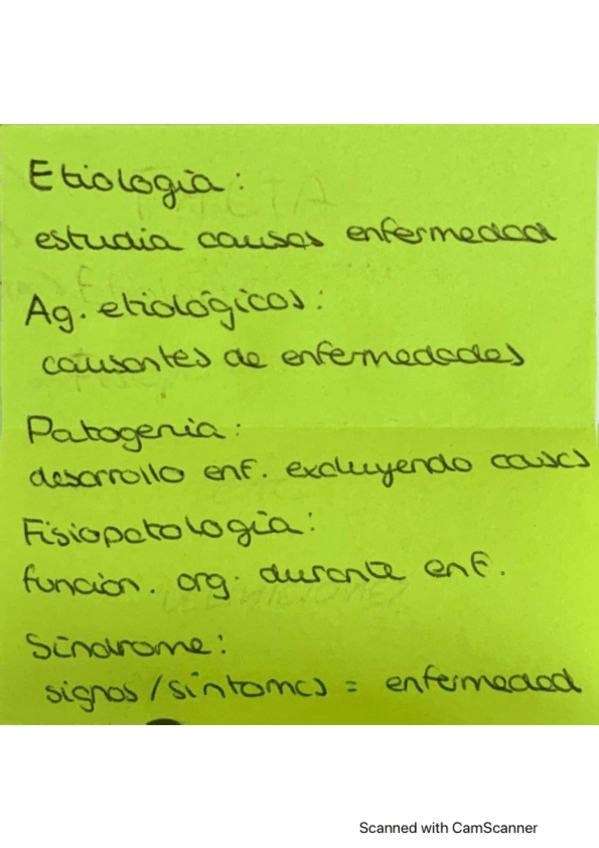 Etiología:
estudia causas enfermedad
Ag. etiológicos:
causantes de enfermedades
Patogenia:
desarrollo enf. excluyendo causas
Fisiopatología:
función. org. durante enf.
Síndrome:
signos/síntomas = enfermedad
Scanned with CamScanner